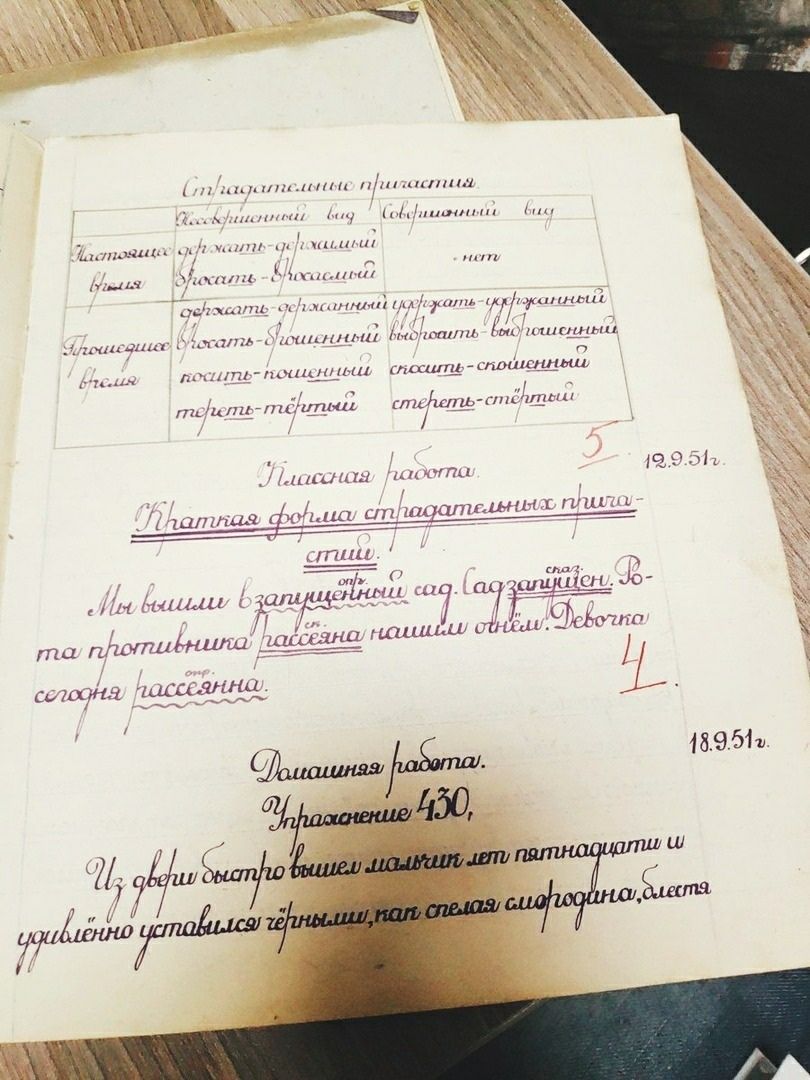 Страдательные причастия
Несовершенный вид Совершенный вид
Настоящее время держать-держимый нет
бросать-бросаемый
Прошедшее время держать-держанный удержать-удержанный
бросать-брошенный выбросить-выброшенный
косить-кошенный скосить-скошенный
тереть-тёртый стереть-стёртый
5
12.9.51г.
Классная работа.
Краткая форма страдательных прича-
стий.
опр. сказ.
Мы вышли в запущенный сад. Сад запущен. Ро-
ск.
та противника рассеяна нашим огнём. Девочка
опр.
сегодня рассеянна.
4
18.9.51г.
Домашняя работа.
Упражнение 430,
Из двери быстро вышел мальчик лет пятнадцати и
удивлённо уставился чёрными, как спелая смородина, блестя